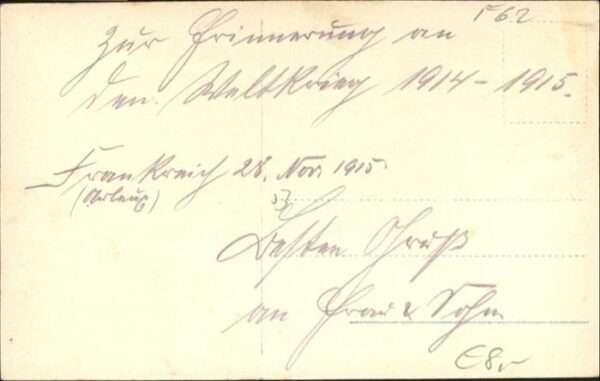 F62
Zur Erinnerung an
den Weltkrieg 1914-1915.
Frankreich 28. Nov. 1915
Besten Gruß
an Frau & Sohn